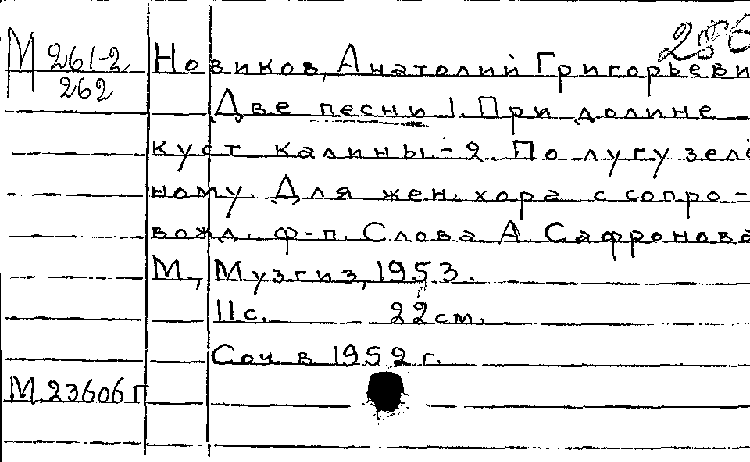 286
М 261-2 Новиков, Анатолий Григорьеви
262
Две песни 1. При долине
куст калины.- 2. По лугу зелё
ному. Для жен. хора с сопро-
вожд. ф-п. Слова А Сафронова
М., Музгиз, 1953.
11с. 22см.
Соч в 1952 г.
М 23606 г